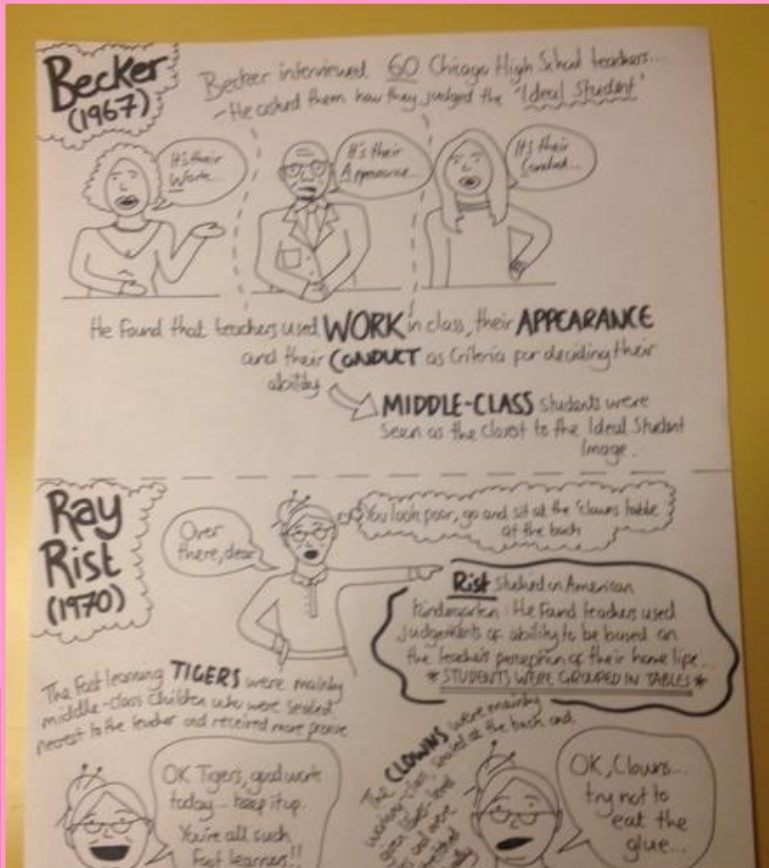 Becker
(1967)
Becker interviewed 60 Chicago High School teachers...
- He asked them how they judged the 'Ideal Student'
It's their
Work...
It's their
Appearance...
It's their
Conduct...
He found that teachers used WORK in class, their APPEARANCE
and their CONDUCT as criteria for deciding their
ability
MIDDLE-CLASS students were
seen as the closest to the Ideal Student
Image...
Ray
Rist
(1970)
Over
there, dear
You look poor, go and sit at the 'clowns table
at the back
Rist studied an American
Kindergarten: He found teachers used
judgements of ability to be based on
the teacher's perception of their home life...
* STUDENTS WERE GROUPED IN TABLES *
The fast learning TIGERS were mainly
middle-class children who were seated
nearest to the teacher and received more praise
The CLOWNS were mainly
working-class, seated at the back and
given lower-level
OK Tigers, good work
today... keep it up.
You're all such
fast learners!!
OK, Clowns...
try not to
eat the
glue...